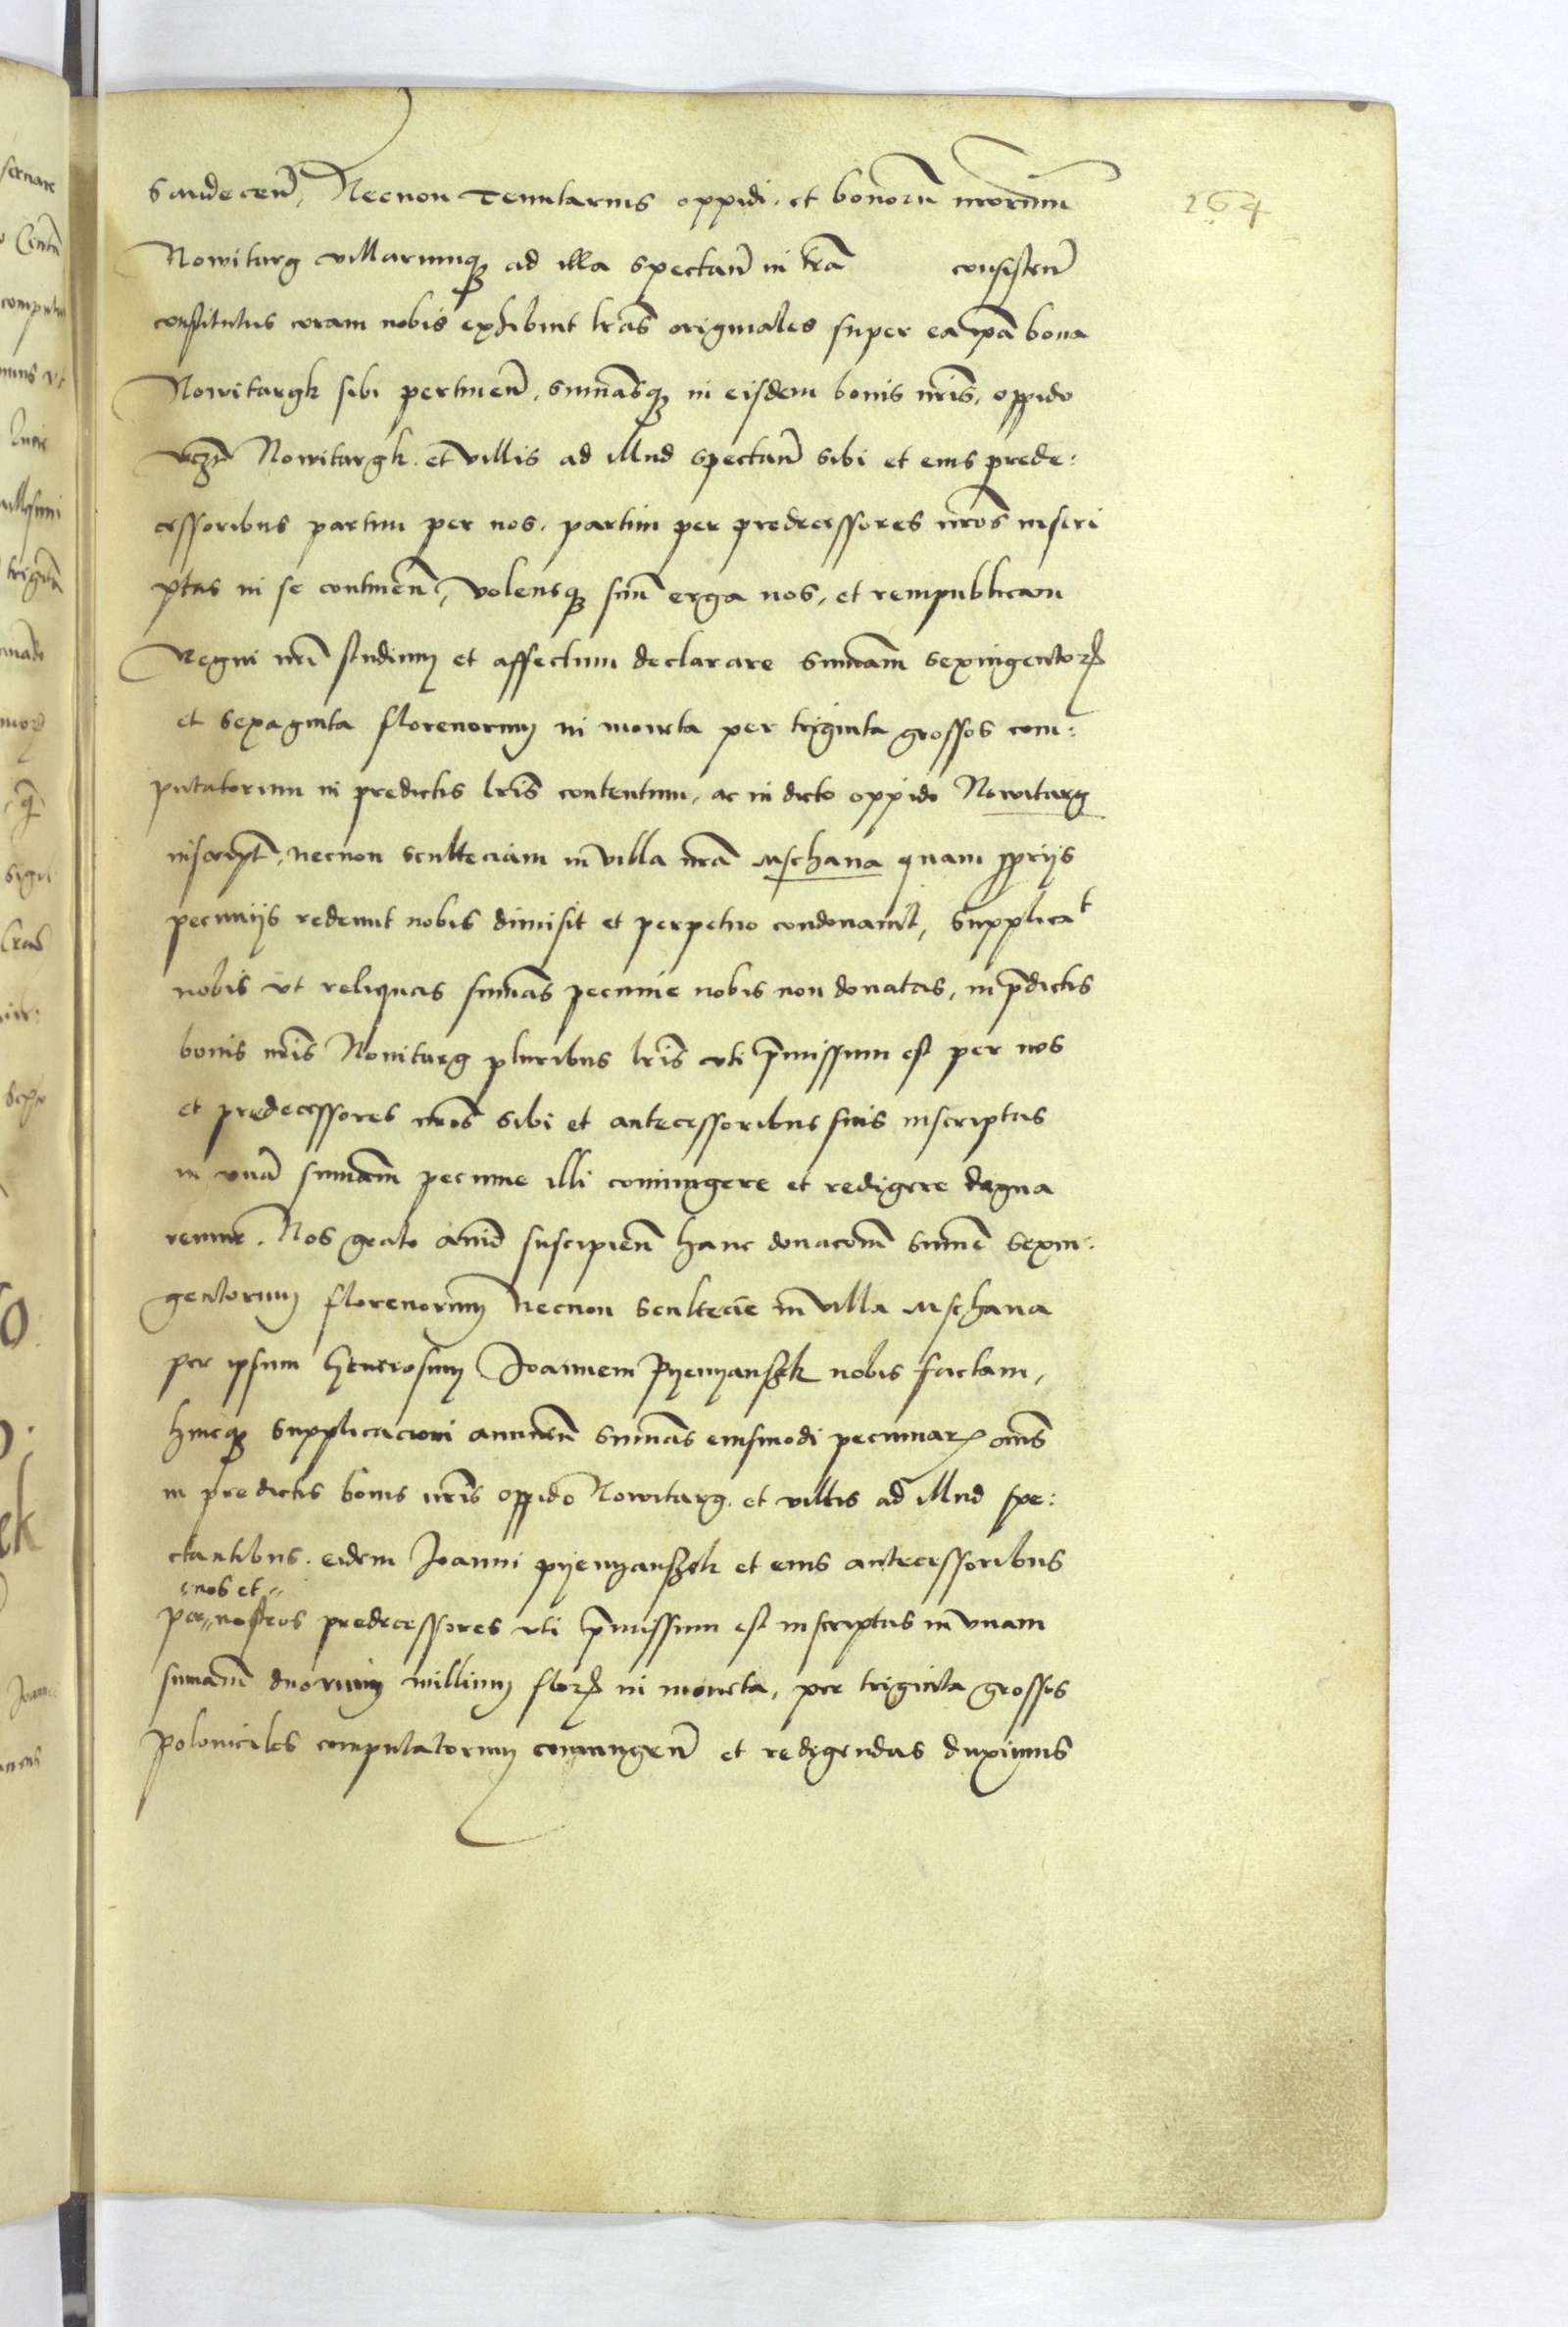 164
Sandecen̄, Necnon Tenutarius oppidi et bonorū nr̄orum
Nowitarg villarumq3 ad illa spectan̄ in tr̄a consisten̄
constitutus coram nobis exhibuit lr̄as originales super ea ip̄a bona
Nowitargk sibi pertinen̄, summasq3 in eisdem bonis nr̄is, oppido
vcz Nowitargk et villis ad illud spectan̄ sibi et eius prede:
cessoribus partim per nos, partim per predecessores nr̄os inscri
ptas in se continen̄, volensq3 suū erga nos, et rempublicam
Regni nr̄i studium et affectum declarare summam sexingentor̄
et sexaginta florenorum in moneta per triginta grossos com:
putatorum in predictis lr̄is contentam, ac in dicto oppido Nowitarg
inscript̄, necnon sculteciam in villa nr̄a Mschana quam proprijs
pecunijs redemit nobis dimisit et perpetuo condonauit, supplicat
nobis vt reliquas summas pecunie nobis non donatas, in p̄dictis
bonis nr̄is Nowitarg pluribus lr̄is vti p̄missum est per nos
et predecessores nr̄os sibi et antecessoribus suis inscriptas
in vnā summam pecunie illi coniungere et redigere digna
remur. Nos grato aīo suscipien̄ hanc donacōm summe sexin:
gentorum florenorum Necnon scultecie in villa Mschana
per ipsum Generosum Joannem Pyenyanszk nobis factam,
huicq3 supplicacioni annuen̄ summas eiusmodi pecuniar̄ om̄s
in predictis bonis nr̄is oppido Nowitarg et villis ad illud spe:
ctantibus eidem Joanni pyenyanszk et eius antecessoribus
nos et
per nostros predecessores vti p̄missum est inscriptas in vnam
summam duorum millium flor̄ in moneta, per triginta grossos
polonicales computatorum coniungen̄ et redigendas duximus